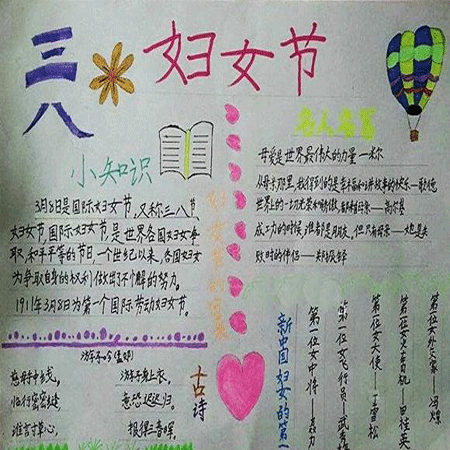 三八
妇女节
小知识
3月8日是国际妇女节,又称三八节、
妇女节,国际妇女节,是世界各国妇女争
取,和平平等的节日,一个世纪以来,各国妇女
为争取自身的权利做出了不懈的努力。
1911年3月8日为第一个国际劳动妇女节。
名人名言
母爱是世界最伟大的力量—米尔
世界上的一切光荣和骄傲,都来自母亲——高尔基
成工力的时候,谁都是朋友,但只有母亲——她是失
败时的伴侣——郑振铎
游子吟(孟郊)
慈母手中线,
游子身上衣。
临行密密缝,
意恐迟迟归。
谁言寸草心,
报得三春晖。
古诗
新中国妇女的第一
第一位女中将—聂力
第一位女飞行员—武秀梅
第一位女大使—丁雪松
第一位女火车司机—田桂英
第一位女外交家—冯嫽